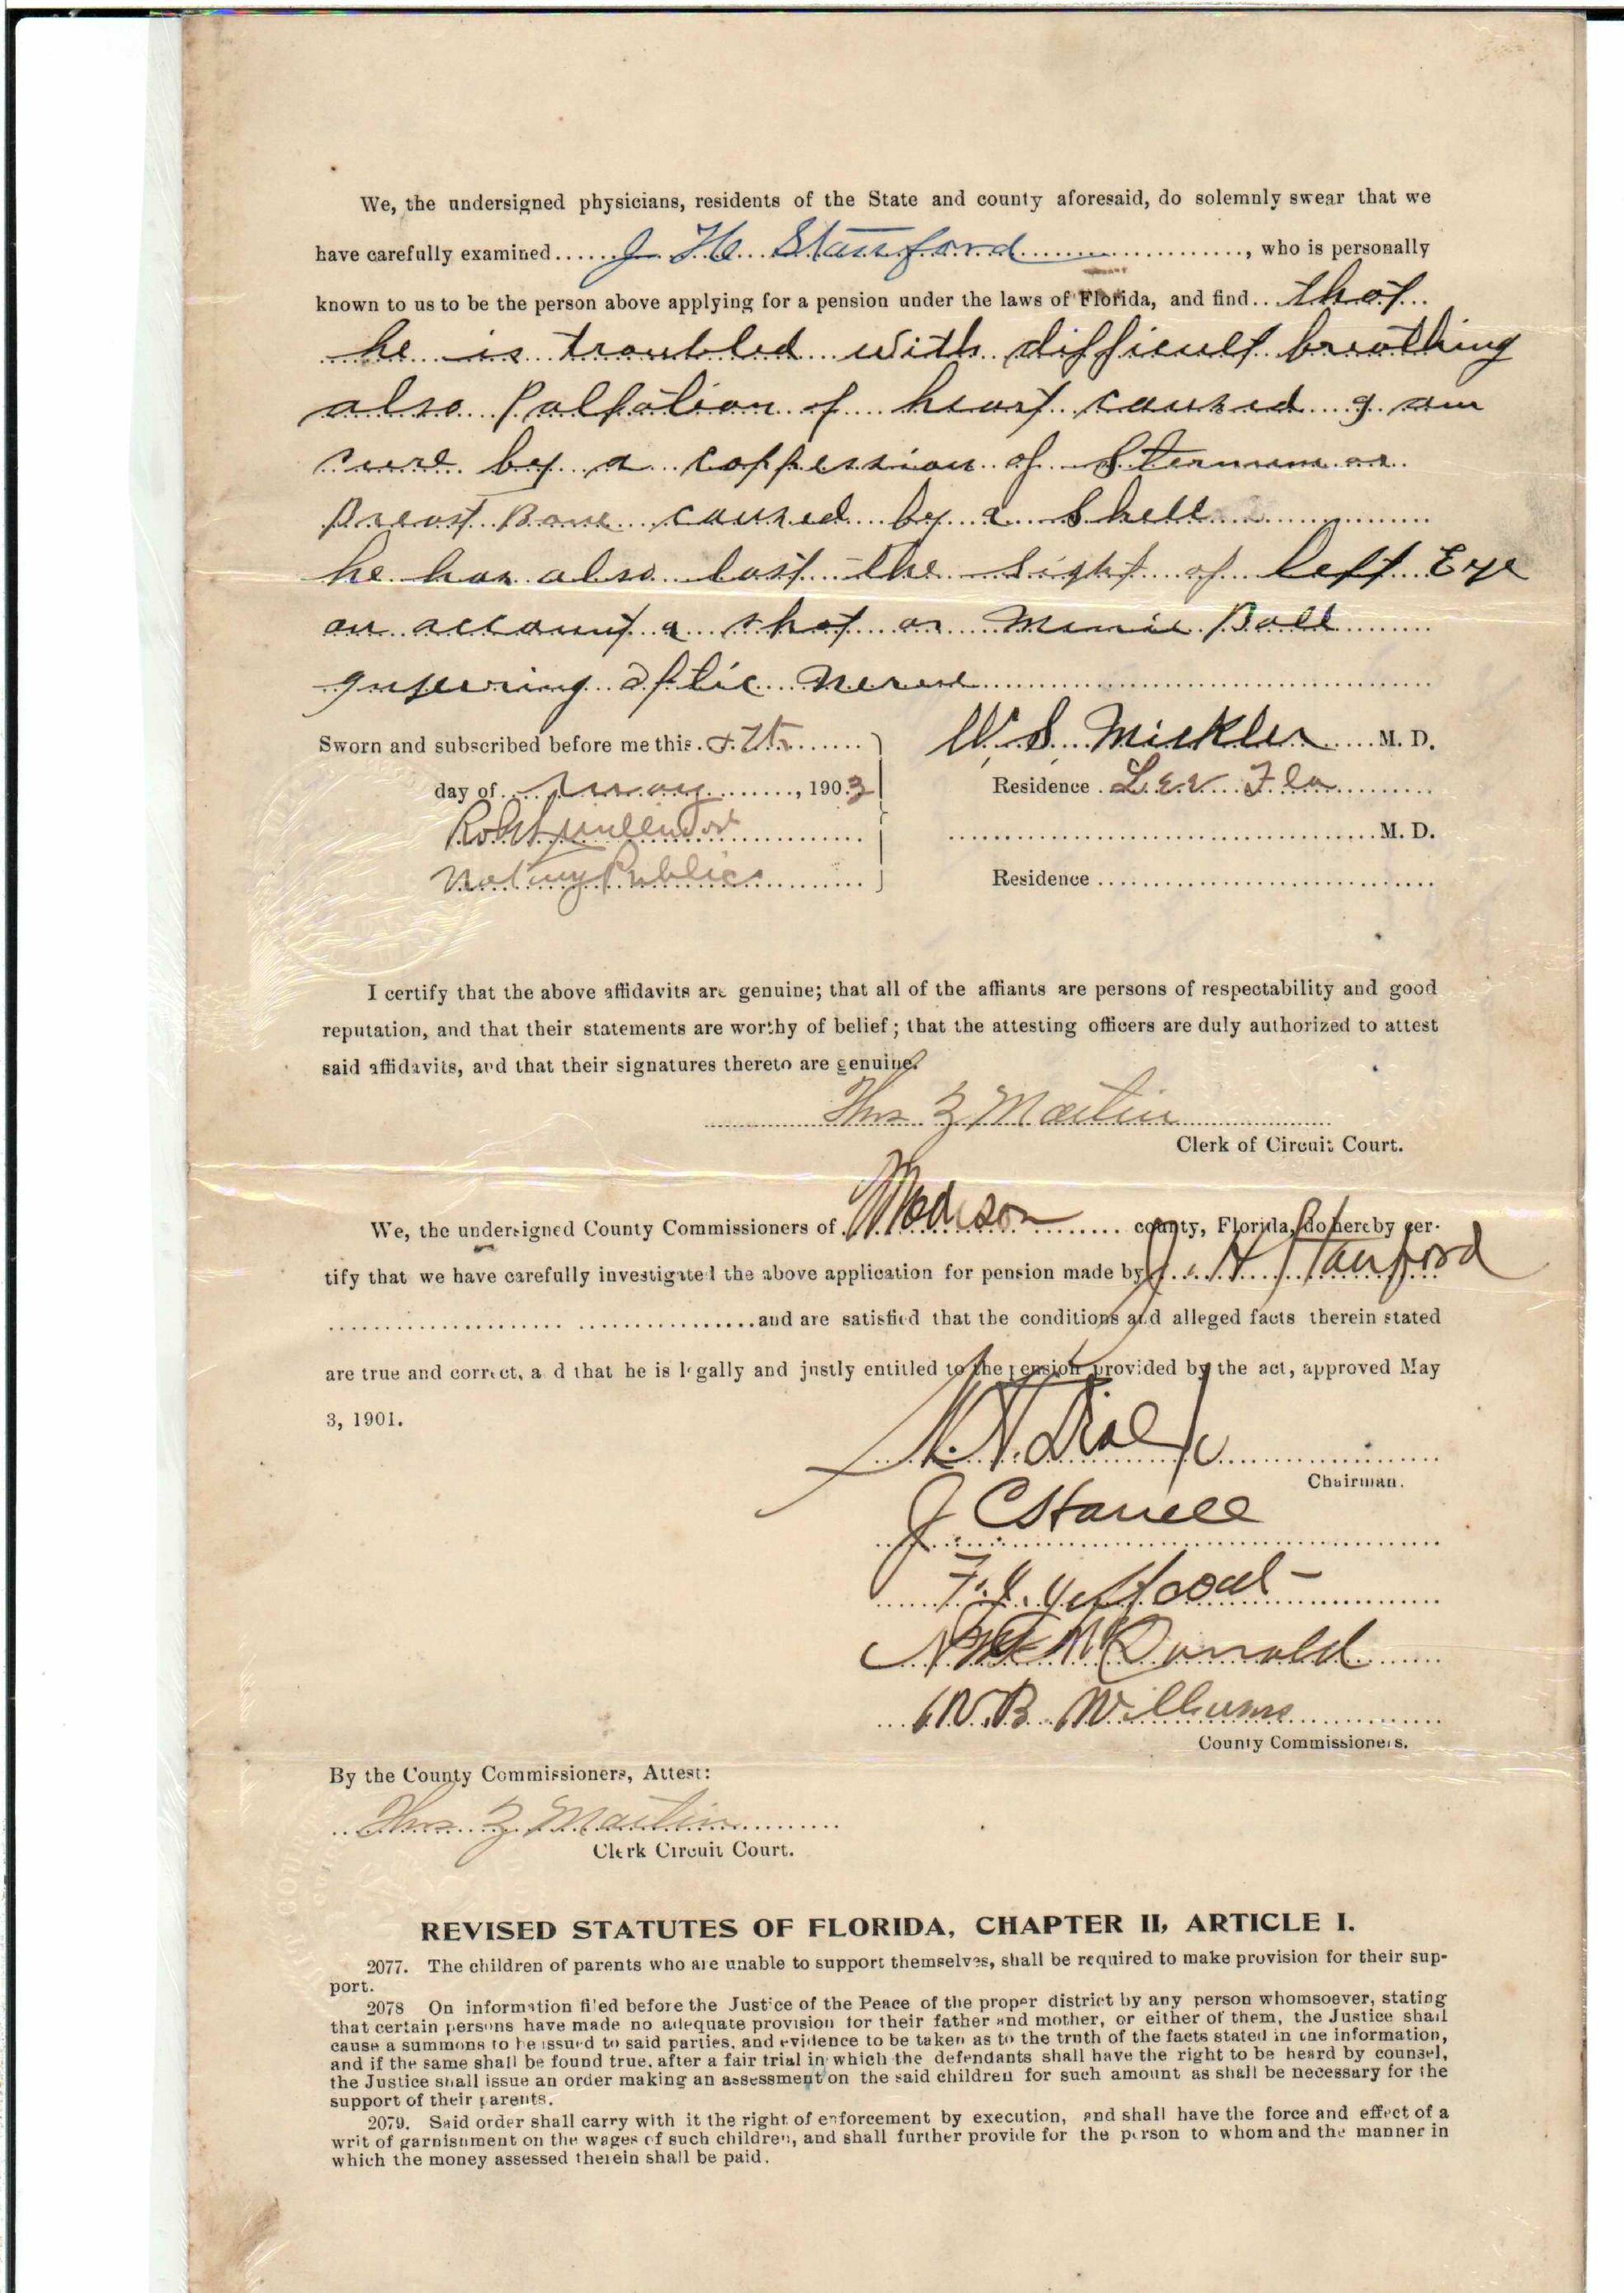 We, the undersigned physicians, residents of the State and county aforesaid, do solemnly swear that we
have carefully examined ...... J. H. Stanford ......, who is personally
known to us to be the person above applying for a pension under the laws of Florida, and find.. that
he is troubled with difficult breathing
also Palpation of heart caused I am
sure by a coppession of Sternum or
Breast Bone caused by a Shell
he has also lost the sight of left Eye
on account a shot or Minie Ball
injuering optic nerve
Sworn and subscribed before me this
W. S. Mickler M. D.
day of May, 1903
Residence Lee Fla
M. D.
Notary Public
Residence
I certify that the above affidavits are genuine; that all of the affiants are persons of respectability and good
reputation, and that their statements are worthy of belief; that the attesting officers are duly authorized to attest
said affidavits, and that their signatures thereto are genuine.
Thos Z Martin
Clerk of Circuit Court.
We, the undersigned County Commissioners of Madison county, Florida, do hereby cer-
tify that we have carefully investigated the above application for pension made by J. H. Stanford
and are satisfied that the conditions and alleged facts therein stated
are true and correct, and that he is legally and justly entitled to the pension provided by the act, approved May
3, 1901.
Chairman.
J C Harrell
McDonald
W. B. Williams
County Commissioners.
By the County Commissioners, Attest:
Thos Z Martin
Clerk Circuit Court.
REVISED STATUTES OF FLORIDA, CHAPTER II, ARTICLE I.
2077. The children of parents who are unable to support themselves, shall be required to make provision for their sup-
port.
2078 On information filed before the Justice of the Peace of the proper district by any person whomsoever, stating
that certain persons have made no adequate provision for their father and mother, or either of them, the Justice shall
cause a summons to be issued to said parties, and evidence to be taken as to the truth of the facts stated in the information,
and if the same shall be found true, after a fair trial in which the defendants shall have the right to be heard by counsel,
the Justice shall issue an order making an assessment on the said children for such amount as shall be necessary for the
support of their parents.
2079. Said order shall carry with it the right of enforcement by execution, and shall have the force and effect of a
writ of garnishment on the wages of such children, and shall further provide for the person to whom and the manner in
which the money assessed therein shall be paid.